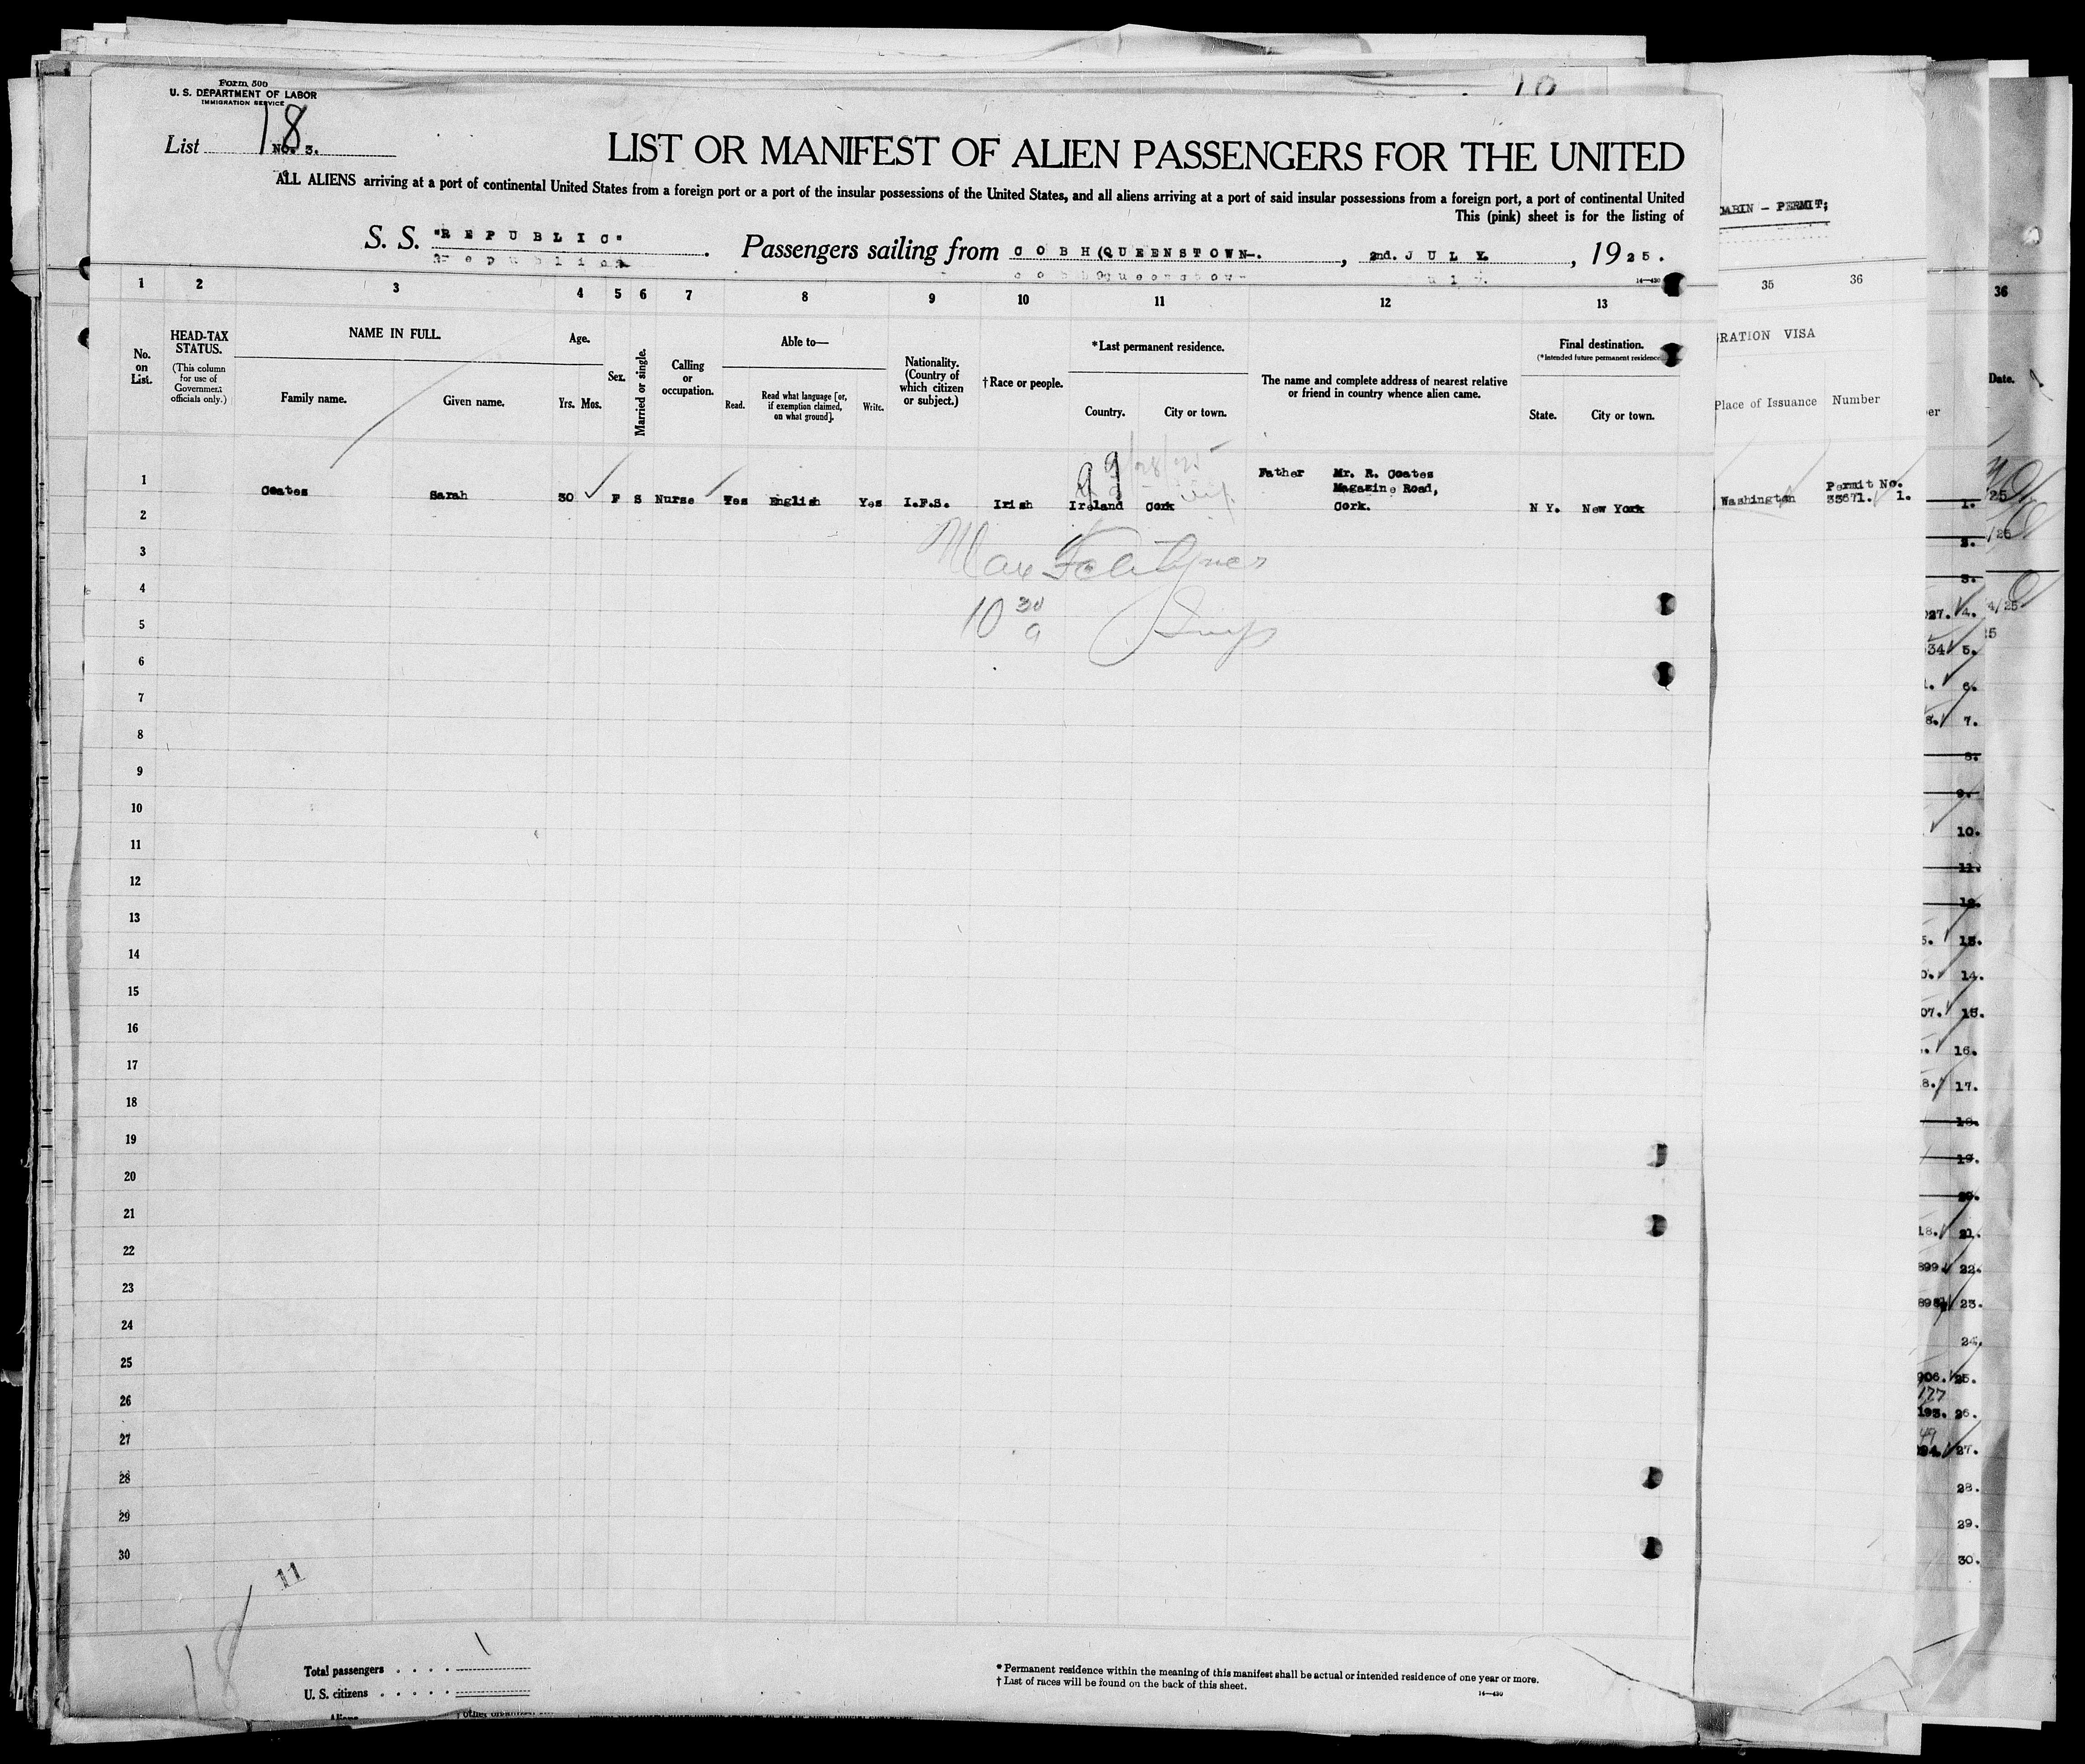 Form 500
U. S. DEPARTMENT OF LABOR
IMMIGRATION SERVICE
18
List No. 3.
LIST OR MANIFEST OF ALIEN PASSENGERS FOR THE UNITED
ALL ALIENS arriving at a port of continental United States from a foreign port or a port of the insular possessions of the United States, and all aliens arriving at a port of said insular possessions from a foreign port, a port of continental United
This (pink) sheet is for the listing of
S. S. "REPUBLIC". Passengers sailing from COBH(QUEENSTOWN-. , 2nd. JULY. , 1925.
CABIN - PERMIT;
1 2 3 4 5 6 7 8 9 10 11 12 13 35 36 36
No. on List.
HEAD-TAX STATUS.
(This column for use of Government officials only.)
NAME IN FULL.
Family name. Given name.
Age.
Yrs. Mos.
Sex.
Married or single.
Calling or occupation.
Able to—
Read. Read what language [or, if exemption claimed, on what ground]. Write.
Nationality. (Country of which citizen or subject.)
†Race or people.
*Last permanent residence.
Country. City or town.
The name and complete address of nearest relative or friend in country whence alien came.
Final destination.
(*Intended future permanent residence
State. City or town.
GRATION VISA
Place of Issuance Number
Date.
1 Coates Sarah 30 F S Nurse Yes English Yes I.F.S. Irish Ireland Cork Father Mr. R. Coates
Magazine Road,
Cork. N Y. New York Washington Permit No.
35671. 1.
2
3
4
10 30 a
5
6
7
8
9
10
11
12
13
14
15
16
17
18
19
20
21
22
23
24
25
26
27
28
29
30
1.
2.
3.
4.
5.
6.
7.
8.
9.
10.
11.
12.
13.
14.
15.
16.
17.
18.
19.
20.
21.
22.
23.
24.
25.
26.
27.
28.
29.
30.
11
18
Total passengers . . . . 1
U. S. citizens . . . . .
Aliens
* Permanent residence within the meaning of this manifest shall be actual or intended residence of one year or more.
† List of races will be found on the back of this sheet.
14—430